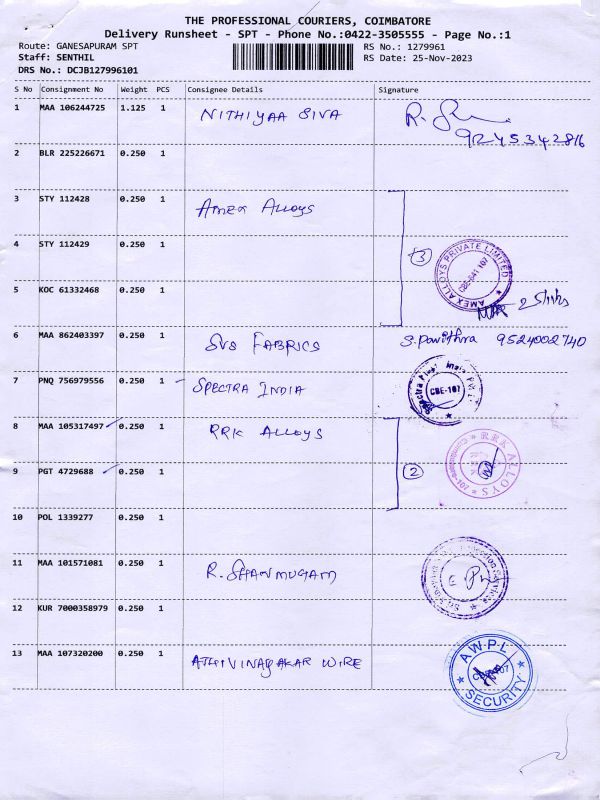 THE PROFESSIONAL COURIERS, COIMBATORE
Delivery Runsheet - SPT - Phone No.:0422-3505555 - Page No.:1
Route: GANESAPURAM SPT RS No.: 1279961
Staff: SENTHIL RS Date: 25-Nov-2023
DRS No.: DCJB127996101
S No Consignment No Weight PCS Consignee Details Signature
1 MAA 106244725 1.125 1 NITHIYAA SIVA R.
9245342816
2 BLR 225226671 0.250 1
3 STY 112428 0.250 1 AMEX ALLOYS
4 STY 112429 0.250 1 3 AMEX ALLOYS PRIVATE LIMITED CBE-641 107
5 KOC 61332468 0.250 1
6 MAA 862403397 0.250 1 SVS FABRICS S. Pavithra 9524002740
7 PNQ 756979556 0.250 1 SPECTRA INDIA Spectra India CBE-107
8 MAA 105317497 0.250 1 RRK ALLOYS
9 PGT 4729688 0.250 1 2 RRK ALLOYS
10 POL 1339277 0.250 1
11 MAA 101571081 0.250 1 R. SHANMUGAM
12 KUR 7000358979 0.250 1
13 MAA 107320200 0.250 1 ATHIVINAYAKAR WIRE AWPL SECURITY